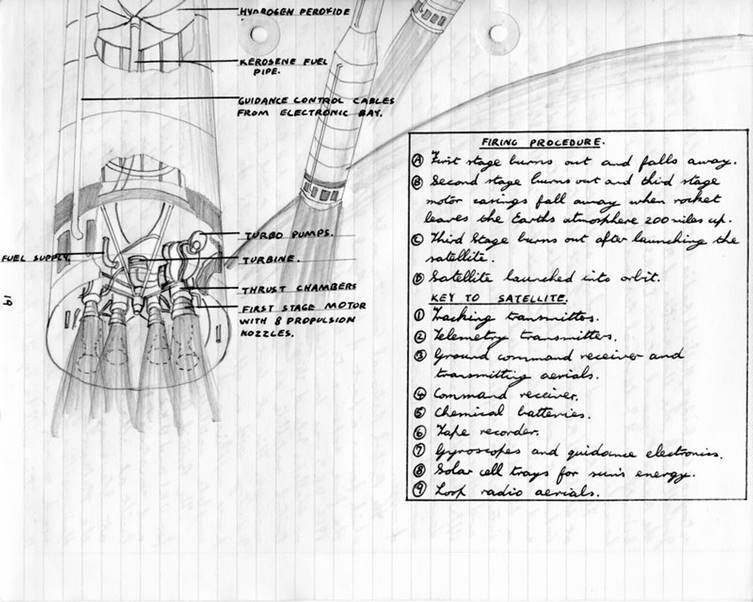 HYDROGEN PEROXIDE
KEROSENE FUEL
PIPE.
GUIDANCE CONTROL CABLES
FROM ELECTRONIC BAY.
TURBO PUMPS.
FUEL SUPPLY.
TURBINE.
THRUST CHAMBERS
FIRST STAGE MOTOR
WITH 8 PROPULSION
NOZZLES.
19
FIRING PROCEDURE.
A First stage burns out and falls away.
B Second stage burns out and third stage
motor casings fall away when rocket
leaves the Earths atmosphere 200 miles up.
C Third Stage burns out after launching the
satellite.
D Satellite launched into orbit.
KEY TO SATELLITE.
1 Tracking transmitters.
2 Telemetry transmitters.
3 Ground command receiver and
transmitting aerials.
4 Command receiver.
5 Chemical batteries.
6 Tape recorder.
7 Gyroscopes and guidance electronics.
8 Solar cell trays for sun's energy.
9 Loop radio aerials.